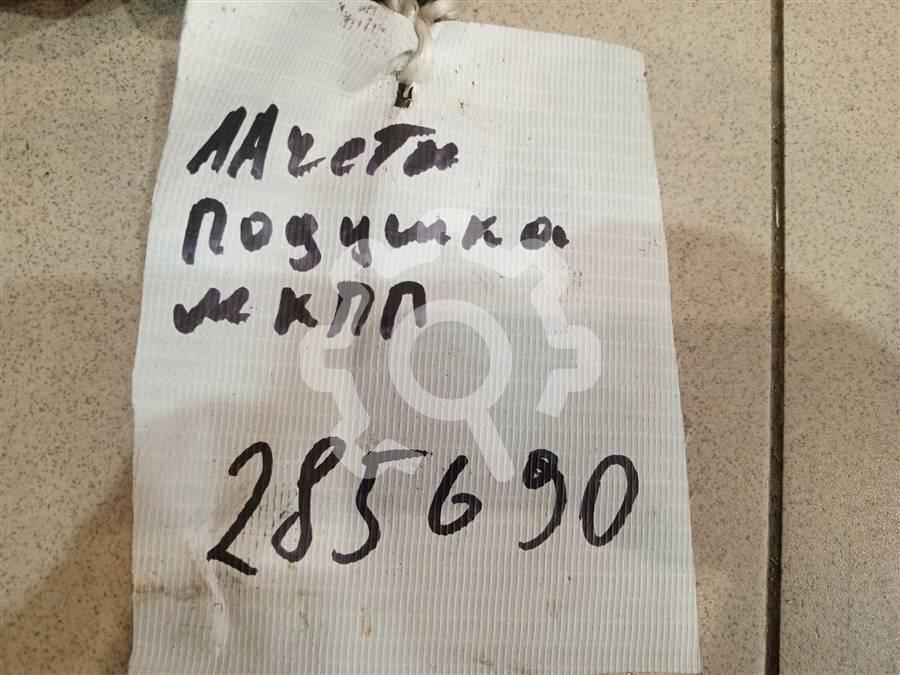 Лачети
Подушка
мкпп
285690